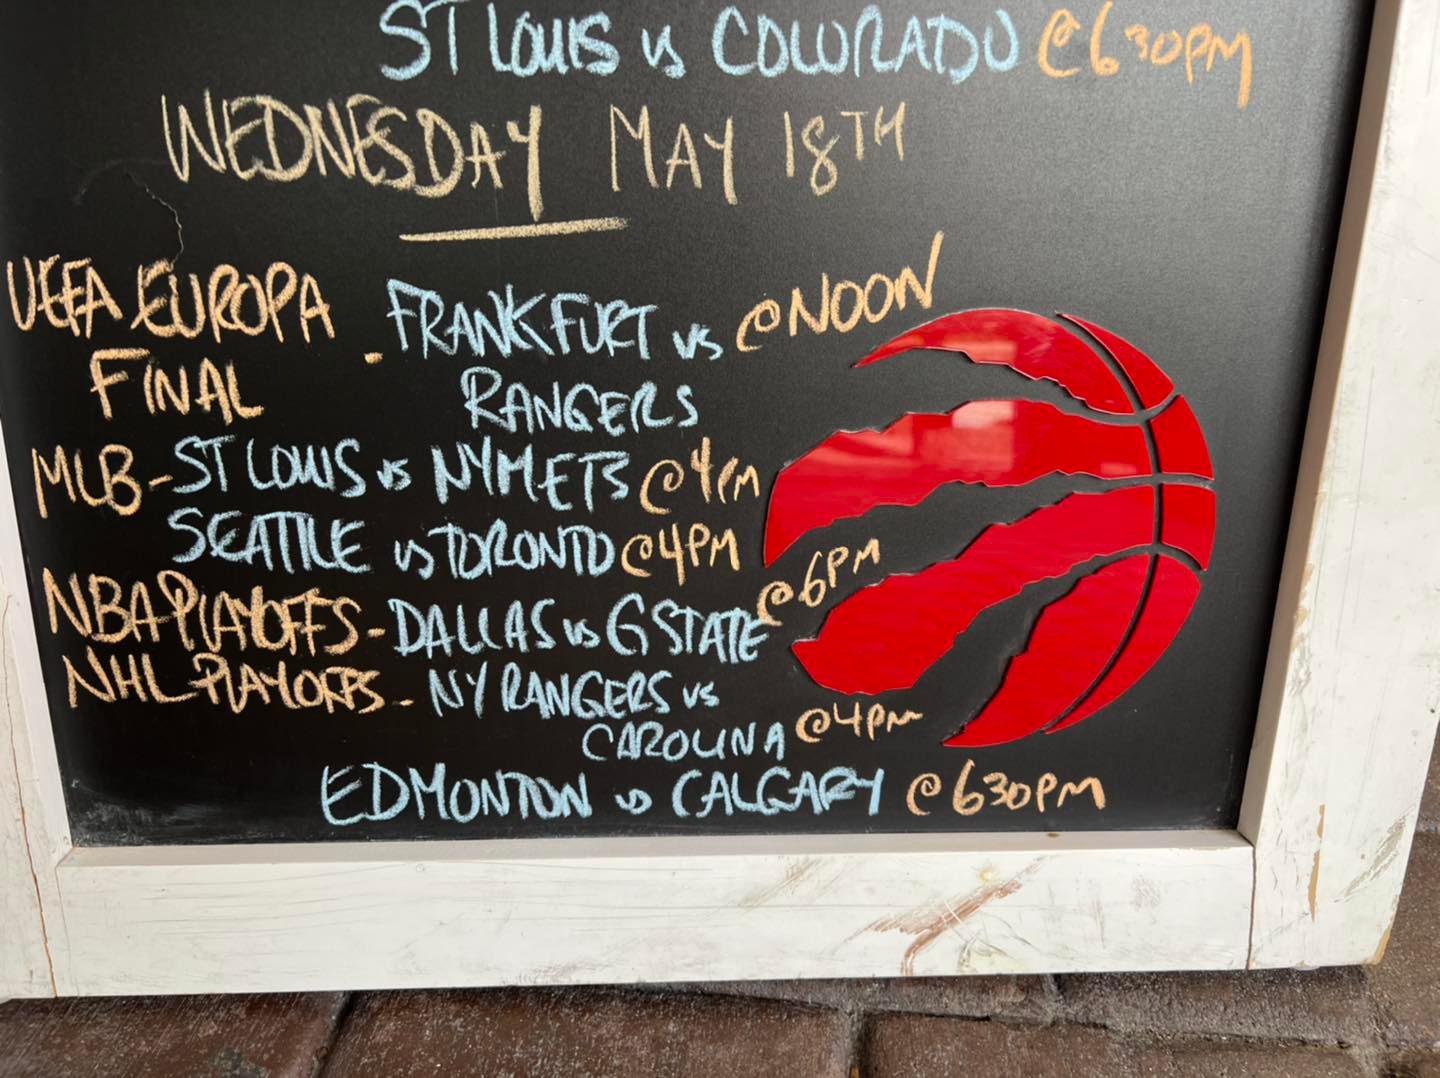 ST LOUIS vs COLORADO @ 630PM
WEDNESDAY MAY 18TH
UEFA EUROPA FINAL - FRANKFURT vs RANGERS @ NOON
MLB - ST LOUIS vs NY METS @ 4PM
SEATTLE vs TORONTO @ 4PM
NBA PLAYOFFS - DALLAS vs G STATE @ 6PM
NHL PLAYOFFS - NY RANGERS vs
CAROLINA @ 4PM
EDMONTON vs CALGARY @ 630PM